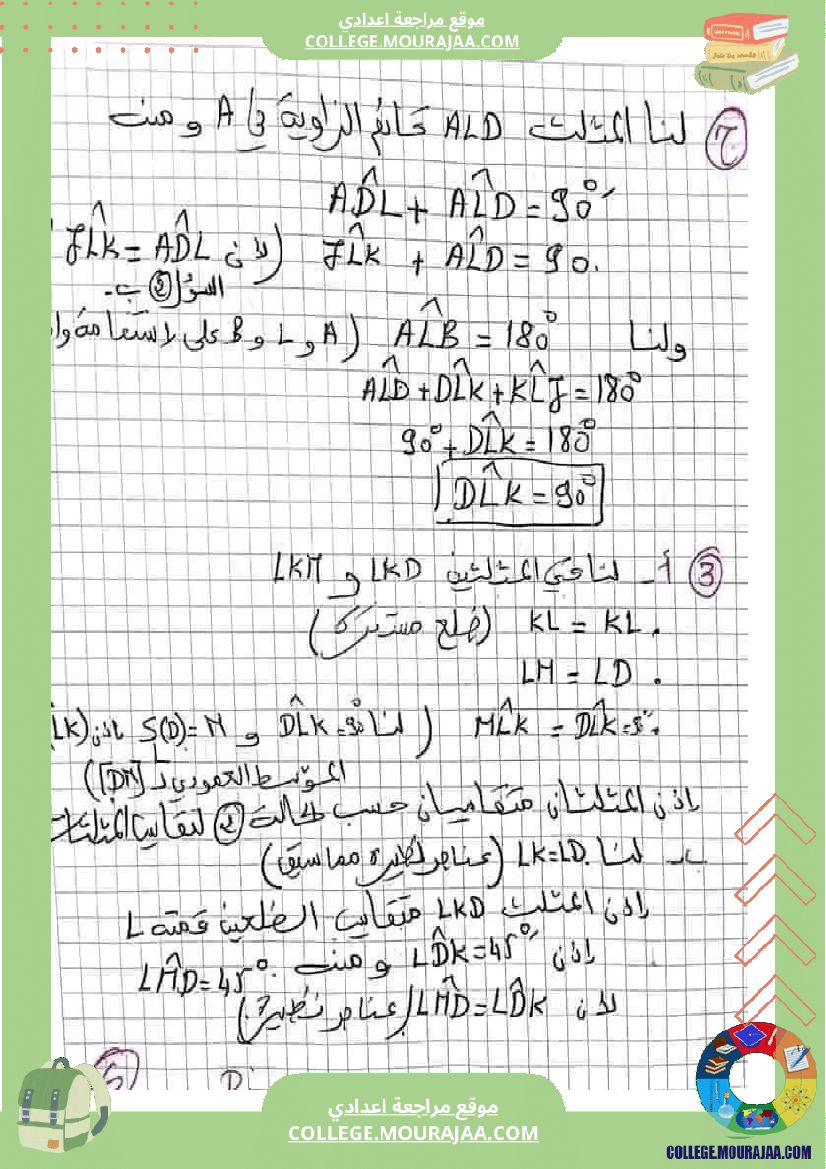 موقع مراجعة اعدادي
COLLEGE.MOURAJAA.COM
ج) لنا المثلث ALD قائم الزاوية في A ومنه
AD̂L + AL̂D = 90°
JL̂K + AL̂D = 90. (لان JL̂K = AD̂L
السؤال ② ب-
ولنا AL̂B = 180° (A و L و B على لاستقامة وا
AL̂D + DL̂K + KL̂J = 180°
90° + DL̂K = 180°
DL̂K = 90°
③ أ- لنا في المثلثين LKD و LKM
. KL = KL (ضلع مشترك)
. LM = LD
. ML̂K = DL̂K = 9° (لنا DL̂K = 90° و S(D) = M إذن (LK)
الموسط العمودي لـ [DM])
إذن المثلثان متقايسان حسب الحالة ② لتقايس المثلثات
ب- لنا LK=LD. (عناصر نظيرة مماسبق)
إذن المثلث LKD متقايس الضلعين قمته L
إذن LD̂K = 45° ومنه LM̂D = 45°.
لان LM̂D = LD̂K (عناصر نظيرة)
⑤ D
موقع مراجعة اعدادي
COLLEGE.MOURAJAA.COM
COLLEGE.MOURAJAA.COM